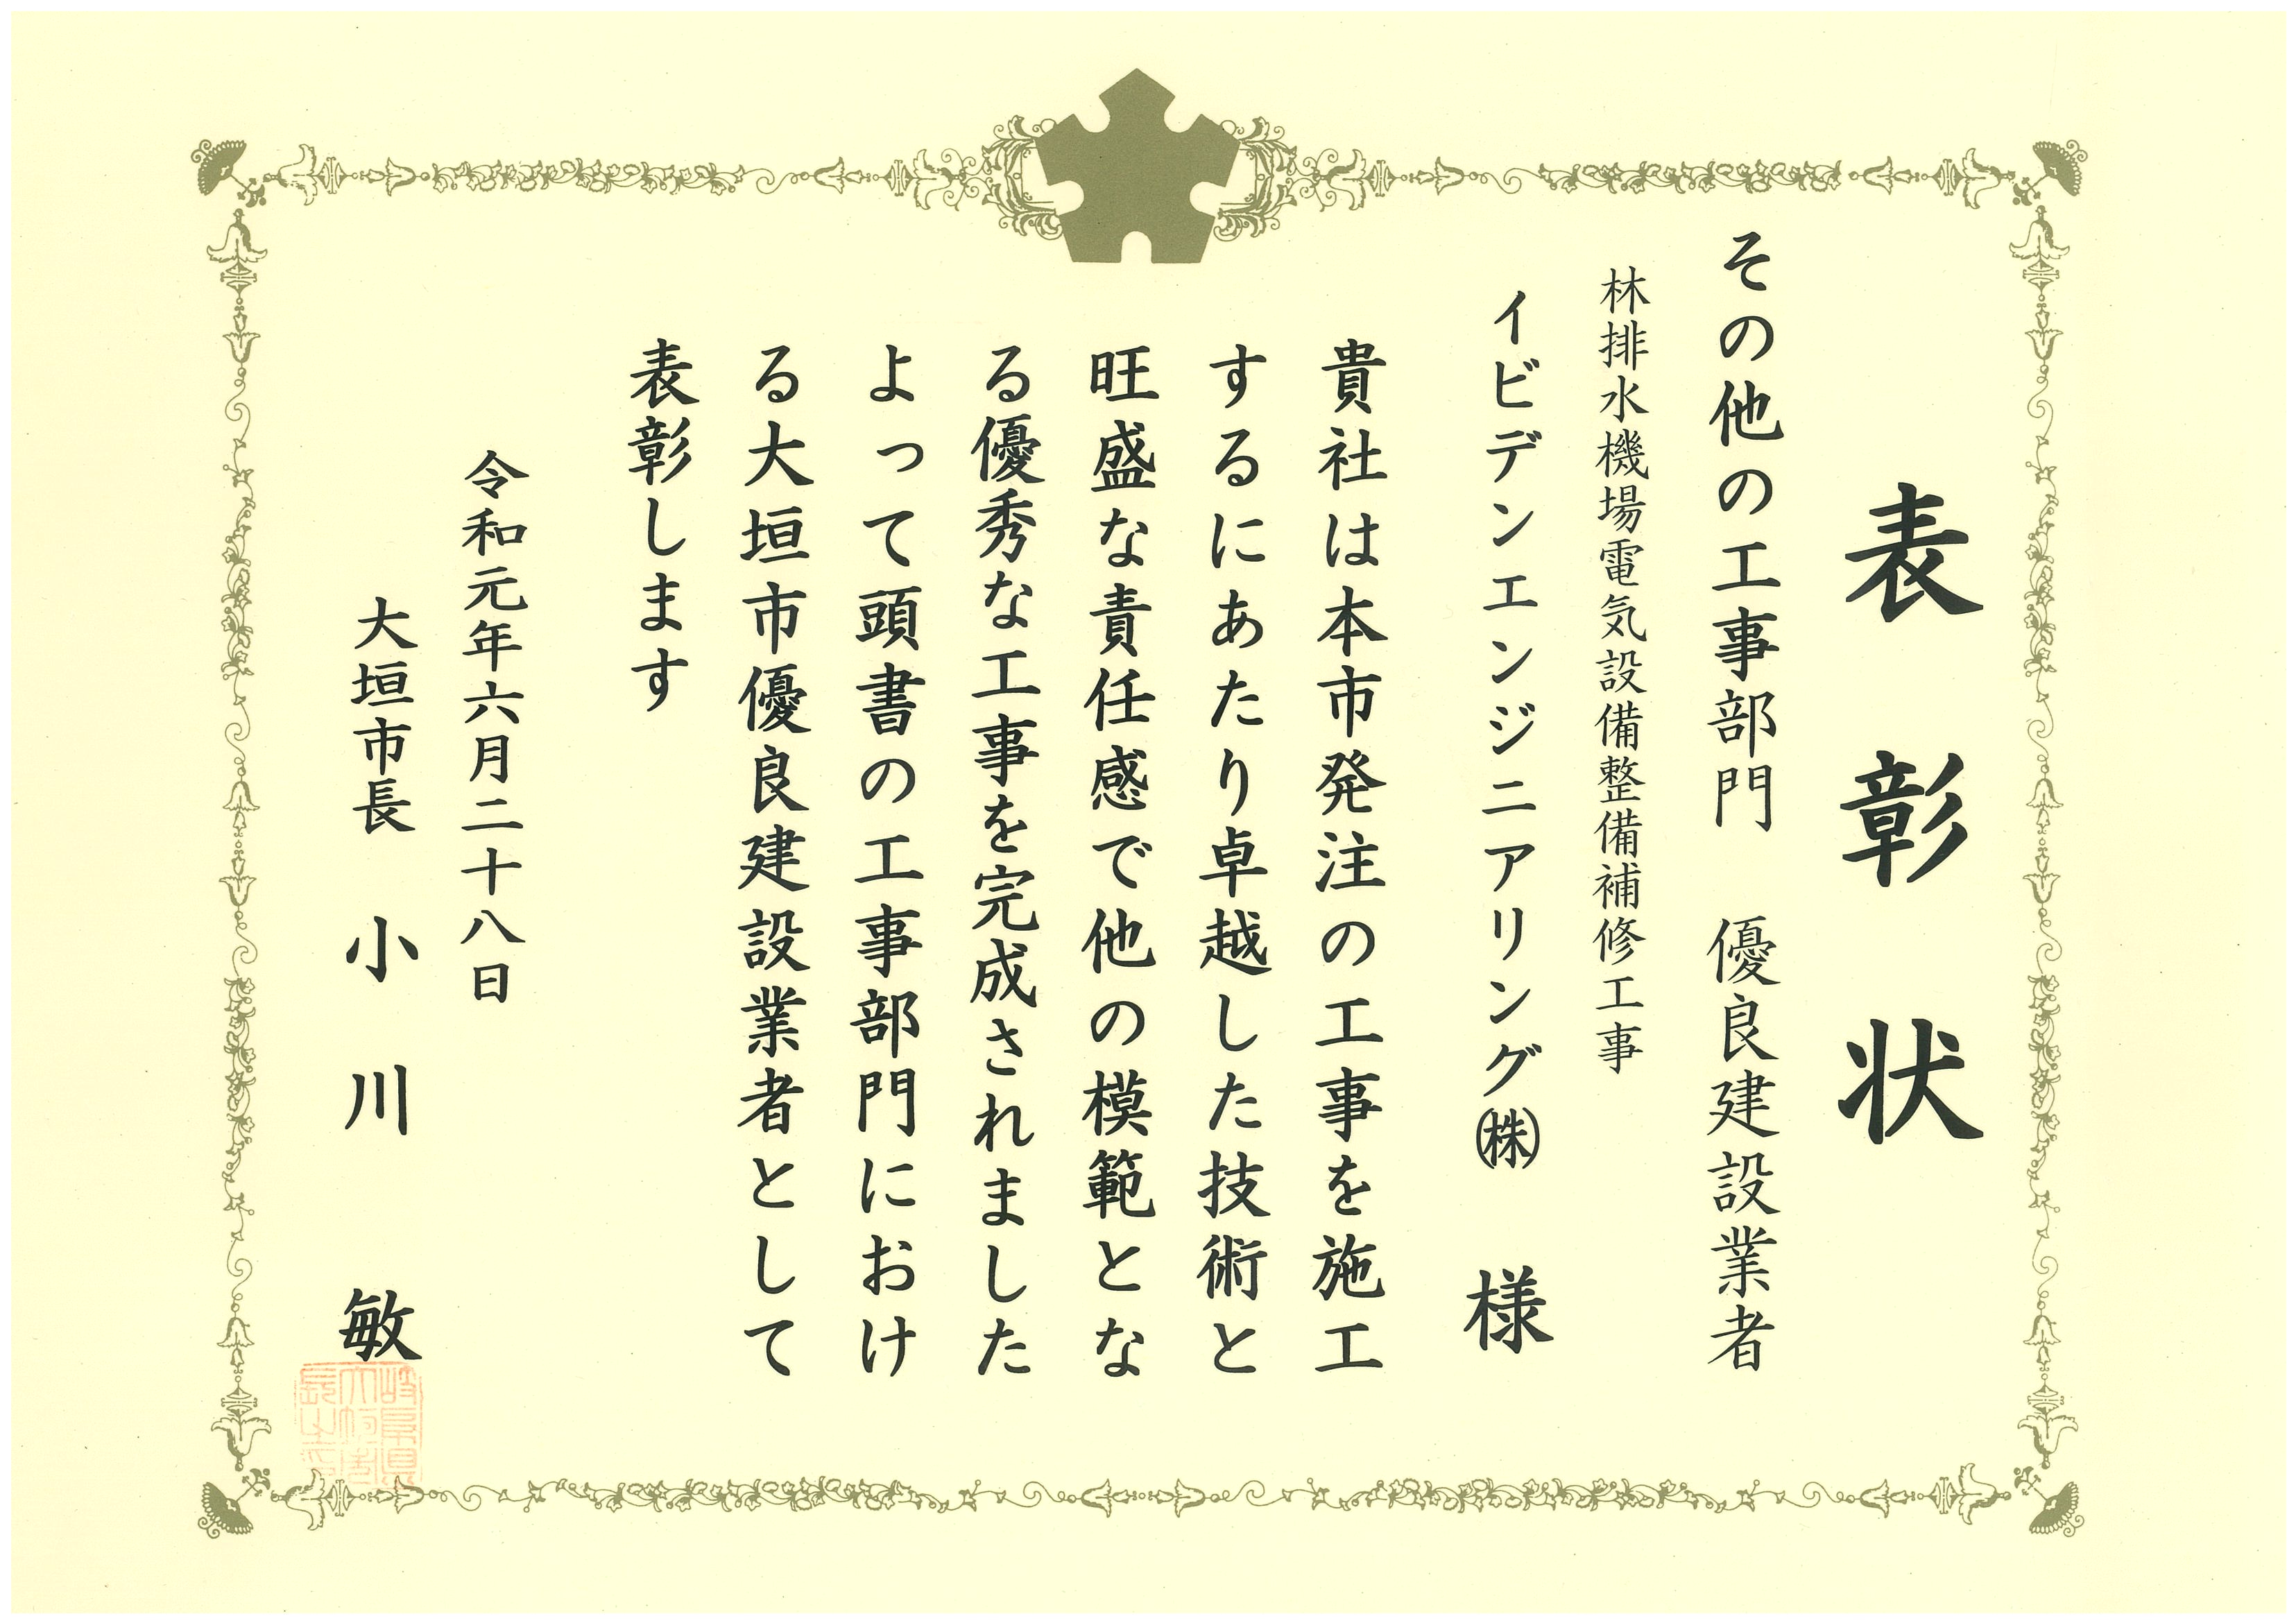 表彰状
その他の工事部門　優良建設業者
林排水機場電気設備整備補修工事
イビデンエンジニアリング㈱　様
貴社は本市発注の工事を施工
するにあたり卓越した技術と
旺盛な責任感で他の模範とな
る優秀な工事を完成されました
よって頭書の工事部門におけ
る大垣市優良建設業者として
表彰します
令和元年六月二十八日
大垣市長　小川　敏
岐阜県
大垣市
長之印